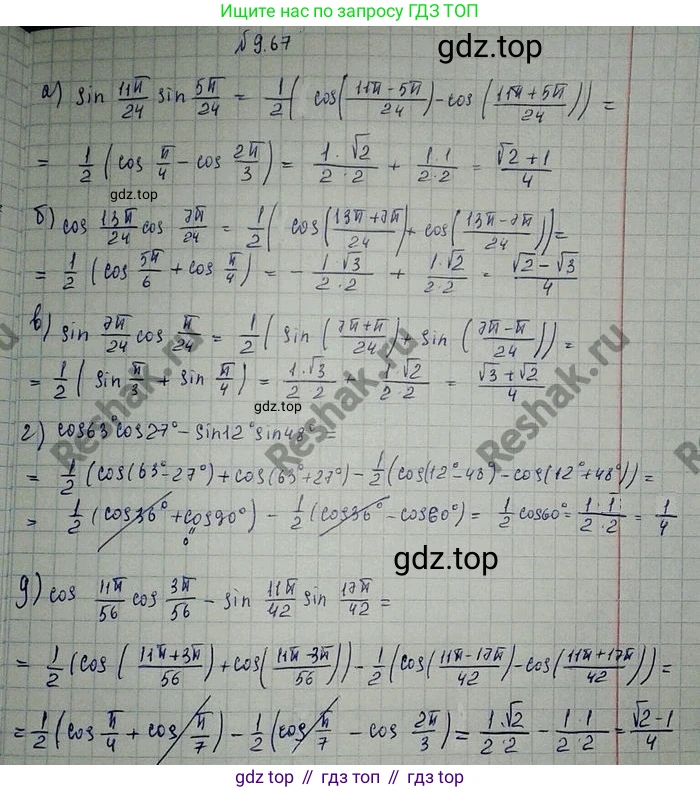 Ищите нас по запросу ГДЗ ТОП
№9.67
gdz.top
а) sin 11π/24 sin 5π/24 = 1/2( cos((11π-5π)/24)-cos ((11π+5π)/24)) =
= 1/2 (cos π/4 - cos 2π/3) = 1·√2/2·2 + 1·1/2·2 = (√2+1)/4
gdz.top
б) cos 13π/24 cos 7π/24 = 1/2( cos((13π+7π)/24)+ cos((13π-7π)/24))=
= 1/2 (cos 5π/6 + cos π/4) = - 1√3/2·2 + 1·√2/2·2 = (√2-√3)/4
в) sin 7π/24 cos π/24 = 1/2( sin ((7π+π)/24)+ sin ((7π-π)/24)) =
= 1/2 ( sin π/3 + sin π/4) = 1·√3/2 2 + 1√2/2 2 = (√3+√2)/4
gdz.top
г) cos63°cos27°-sin12°sin48°=
= 1/2 (cos(63°-27°)+cos(63°+27°)-1/2(cos(12°-48°)-cos(12°+48°))=
= 1/2 (cos36°+cos90°) - 1/2 (cos36°-cos60°)= 1/2 cos60°= 1·1/2·2 = 1/4
0
gdz.top
д) cos 11π/56 cos 3π/56 - sin 11π/42 sin 17π/42 =
= 1/2 (cos ((11π+3π)/56)+cos((11π-3π)/56))-1/2(cos((11π-17π)/42)-cos((11π+17π)/42))=
=1/2(cos π/4 + cos π/7)-1/2(cos π/7 - cos 2π/3)= 1·√2/2·2 - 1·1/2·2 = (√2-1)/4
gdz.top // гдз топ // gdz.top
Reshak.ru
Reshak.ru
Reshak.ru